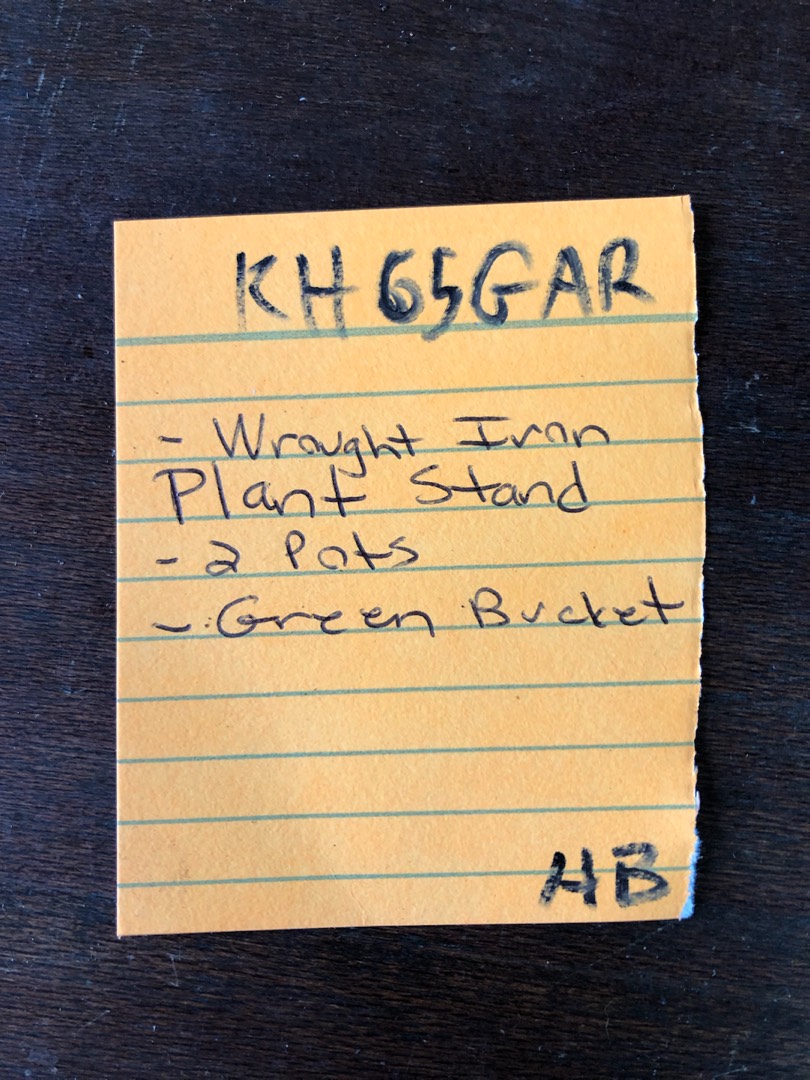 KH65GAR
- Wrought Iron
Plant Stand
- 2 Pots
- Green Bucket
HB